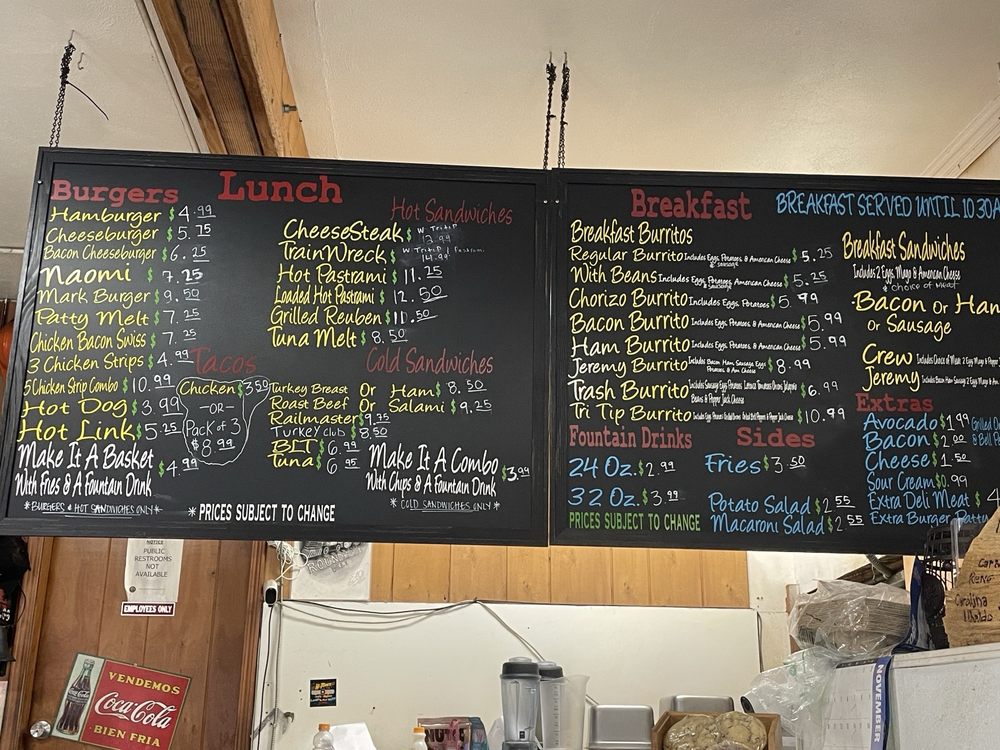 Burgers
Lunch
Hamburger $4.99
Cheeseburger $5.75
Bacon Cheeseburger $6.25
Naomi $7.25
Mark Burger $9.50
Patty Melt $7.25
Chicken Bacon Swiss $7.25
3 Chicken Strips $4.99
5 Chicken Strip Combo $10.99
Hot Dog $3.99
Hot Link $5.25
Make It A Basket $4.99
With Fries & A Fountain Drink
*BURGERS & HOT SANDWICHES ONLY*
Tacos
Chicken $3.50
-OR-
Pack of 3
$8.99
Hot Sandwiches
CheeseSteak $ W TriTiP
TrainWreck $ W TriTiP
Hot Pastrami $11.25
Loaded Hot Pastrami $12.50
Grilled Reuben $11.50
Tuna Melt $8.50
Cold Sandwiches
Turkey Breast Or Ham $8.50
Roast Beef Or Salami $9.25
Railmaster $9.35
Turkey club $8.50
BLT $6.99
Tuna $6.95
Make It A Combo $3.99
With Chips & A Fountain Drink
*COLD SANDWICHES ONLY*
*PRICES SUBJECT TO CHANGE
Breakfast
BREAKFAST SERVED UNTIL 10 30A
Breakfast Burritos
Regular Burrito Includes Eggs, Potatoes, & American Cheese $5.25
With Beans Includes Eggs, Potatoes, & American Cheese $5.25
Chorizo Burrito Includes Eggs, Potatoes $5.99
Bacon Burrito Includes Eggs, Potatoes, & American Cheese $5.99
Ham Burrito Includes Eggs, Potatoes, & American Cheese $5.99
Jeremy Burrito Includes Bacon Ham Sausage Eggs Potatoes & Am Cheese $8.99
Trash Burrito $6.99
Tri Tip Burrito $10.99
Fountain Drinks
24 Oz. $2.99
32 Oz. $3.99
PRICES SUBJECT TO CHANGE
Sides
Fries $3.50
Potato Salad $2.55
Macaroni Salad $2.55
Breakfast Sandwiches
Includes 2 Eggs, Mayo & American Cheese
& choice of meat
Bacon or Ham
or Sausage
Crew
Jeremy
Extras
Avocado $1.99
Bacon $2.00
Cheese $1.50
Sour Cream $0.99
Extra Deli Meat $4
Extra Burger Patty
NOTICE
PUBLIC
RESTROOMS
NOT
AVAILABLE
EMPLOYEES ONLY
VENDEMOS
Coca-Cola
BIEN FRIA
NOVEMBER
Carolina